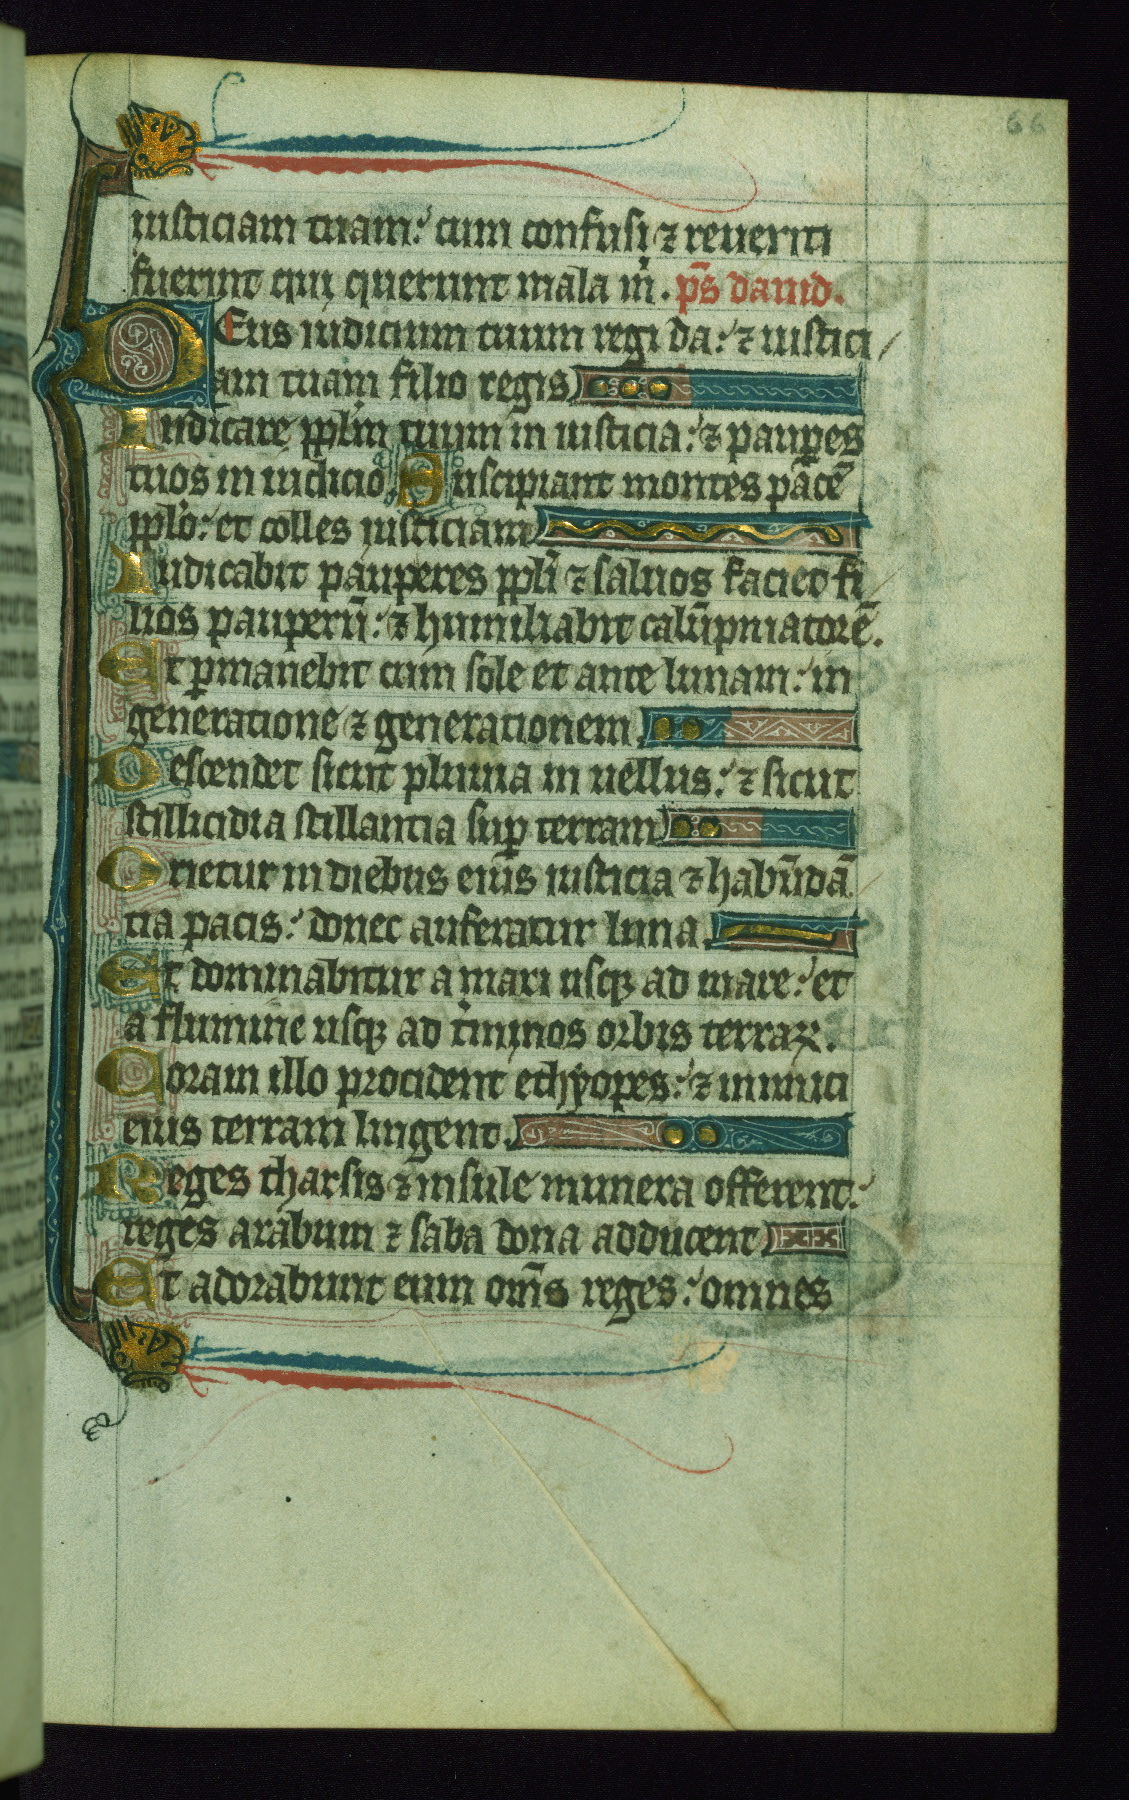 66
iusticiam tuam: cum confusi ⁊ reueriti
fuerint qui querunt mala m̃. ps̃ dauid.
DEus iudicium tuum regi da: ⁊ iustici
am tuam filio regis
Iudicare pplm̃ tuum in iusticia: ⁊ paup̱es
tuos in iudicio Suscipiant montes pacē
pplo: et colles iusticiam
Iudicabit pauperes ppli ⁊ saluos faciet fi
lios pauperū: ⁊ humiliabit calūpniatorē.
Et p̱manebit cum sole et ante lunam: in
generatione ⁊ generationem
Descendet sicut pluuia in uellus: ⁊ sicut
stillicidia stillantia sup̱ terram
Orietur in diebus eius iusticia ⁊ habūdā
tia pacis: donec auferatur luna
Et dominabitur a mari usqꝫ ad mare: et
a flumine usqꝫ ad t̃minos orbis terraꝝ.
Coram illo procident ethyopes: ⁊ inimici
eius terram lingent.
Reges tharsis ⁊ insule munera offerent:
reges arabum ⁊ saba dona adducent
Et adorabunt eum om̃s reges: omnes